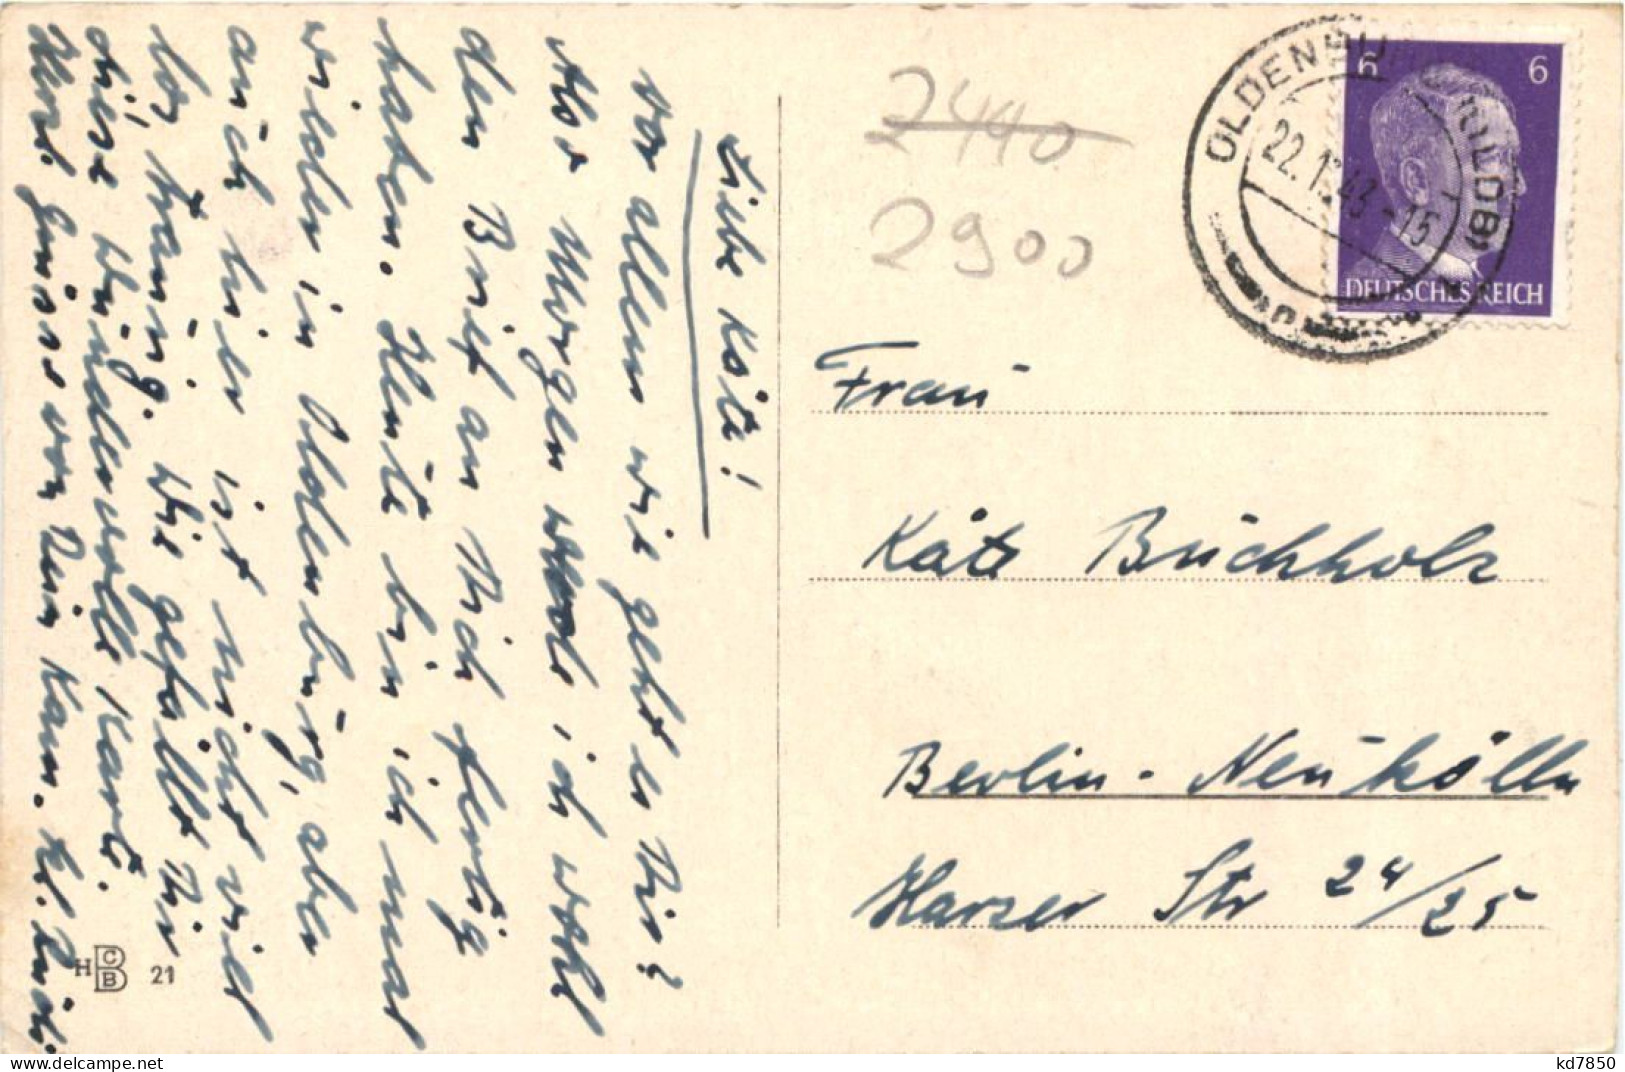 Liebe Käte!
vor allem wie geht es Dir?
Also Morgen werde ich wohl
den Brief an Dich fertig
haben. Heute bin ich mal
wieder in Oldenburg, aber
auch hier ist nicht viel
los, traurig. Wie gefällt Dir
diese wundervolle Karte.
Herzl. Gruss von Dein
2440
2900
OLDENBURG (OLDB)
22.12.43-15
6
6
DEUTSCHES REICH
Frau
Käte Buchholz
Berlin-Neukölln
Harzer Str 24/25
H CBB 21
kd7850